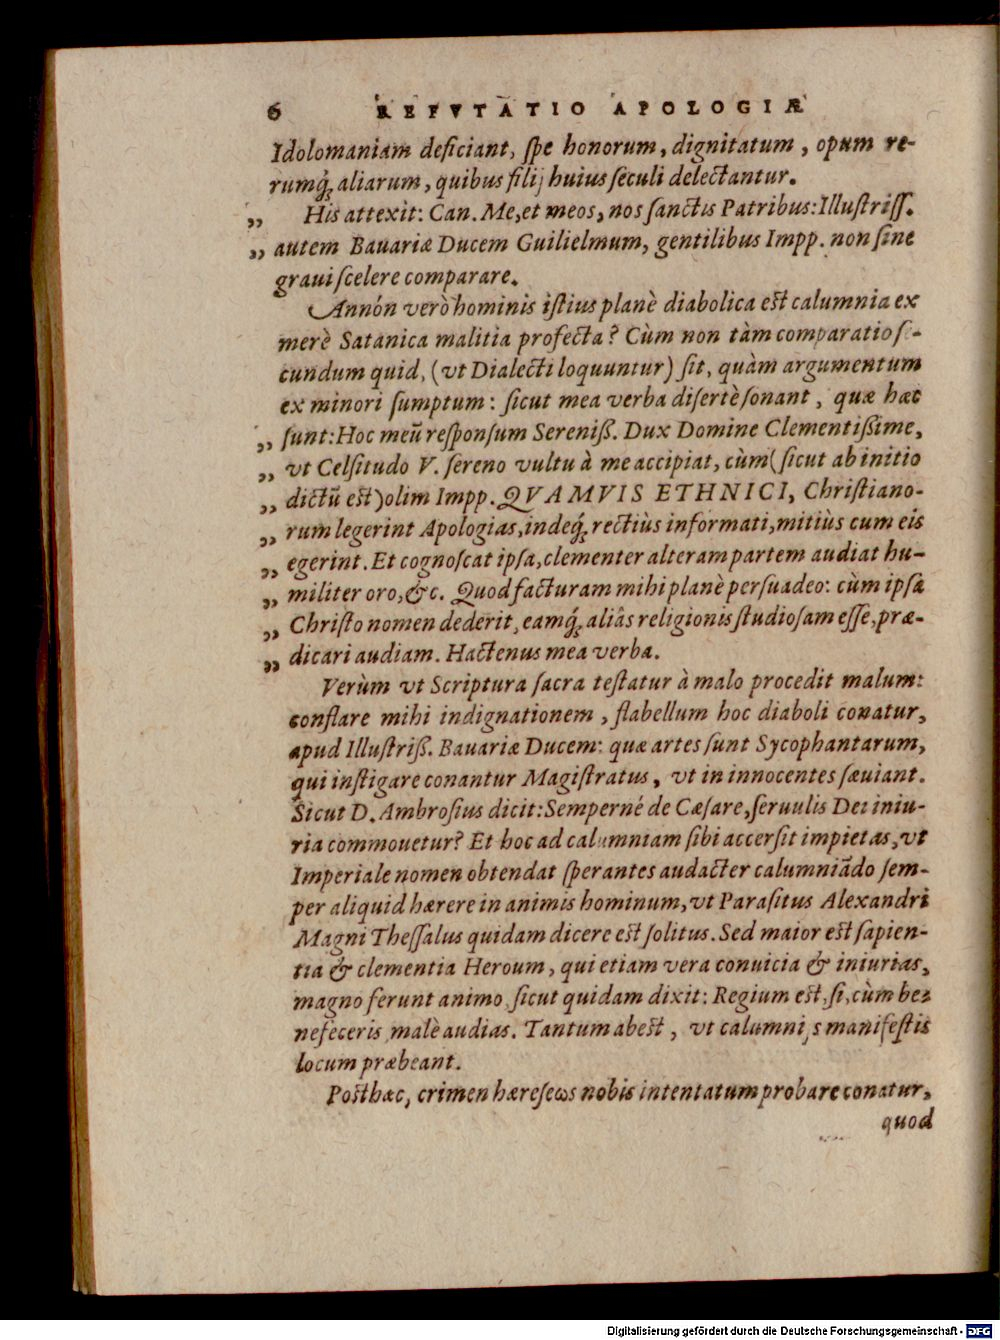 6 REFVTATIO APOLOGIÆ
Idolomaniam deficiant, ſpe honorum, dignitatum, opum re-
rumq́; aliarum, quibus filij huius ſeculi delectantur.
„ His attexit: Can. Me, et meos, nos ſanctis Patribus: Illuſtriſſ.
„ autem Bauariæ Ducem Guilielmum, gentilibus Impp. non ſine
graui ſcelere comparare.
Annón verò hominis iſtius planè diabolica eſt calumnia ex
merè Satanica malitia profecta? Cùm non tàm comparatio ſe-
cundum quid, (vt Dialecti loquuntur) ſit, quàm argumentum
ex minori ſumptum: ſicut mea verba diſertè ſonant, quæ hæc
„ ſunt: Hoc meũ reſponſum Sereniß. Dux Domine Clementißime,
„ vt Celſitudo V. ſereno vultu à me accipiat, cùm (ſicut ab initio
„ dictũ eſt) olim Impp. QVAMVIS ETHNICI, Chriſtiano-
„ rum legerint Apologias, indeq́; rectiùs informati, mitiùs cum eis
„ egerint. Et cognoſcat ipſa, clementer alteram partem audiat hu-
„ militer oro, &c. Quod facturam mihi planè perſuadeo: cùm ipſa
„ Chriſto nomen dederit, eamq́; aliâs religionis ſtudioſam eſſe, præ-
„ dicari audiam. Hactenus mea verba.
Verùm vt Scriptura ſacra teſtatur à malo procedit malum:
conflare mihi indignationem, flabellum hoc diaboli conatur,
apud Illuſtriß. Bauariæ Ducem: quæ artes ſunt Sycophantarum,
qui inſtigare conantur Magiſtratus, vt in innocentes ſæuiant.
Sicut D. Ambroſius dicit: Semperné de Cæſare, ſeruulis Dei iniu-
ria commouetur? Et hoc ad calumniam ſibi accerſit impietas, vt
Imperiale nomen obtendat ſperantes audacter calumniãdo ſem-
per aliquid hærere in animis hominum, vt Paraſitus Alexandri
Magni Theſſalus quidam dicere eſt ſolitus. Sed maior eſt ſapien-
tia & clementia Heroum, qui etiam vera conuicia & iniurias,
magno ferunt animo ſicut quidam dixit: Regium eſt, ſi, cùm be-
nefeceris malè audias. Tantum abeſt, vt calumnijs manifeſtis
locum præbeant.
Poſthæc, crimen hæreſeως nobis intentatum probare conatur,
quod
Digitalisierung gefördert durch die Deutsche Forschungsgemeinschaft - DFG